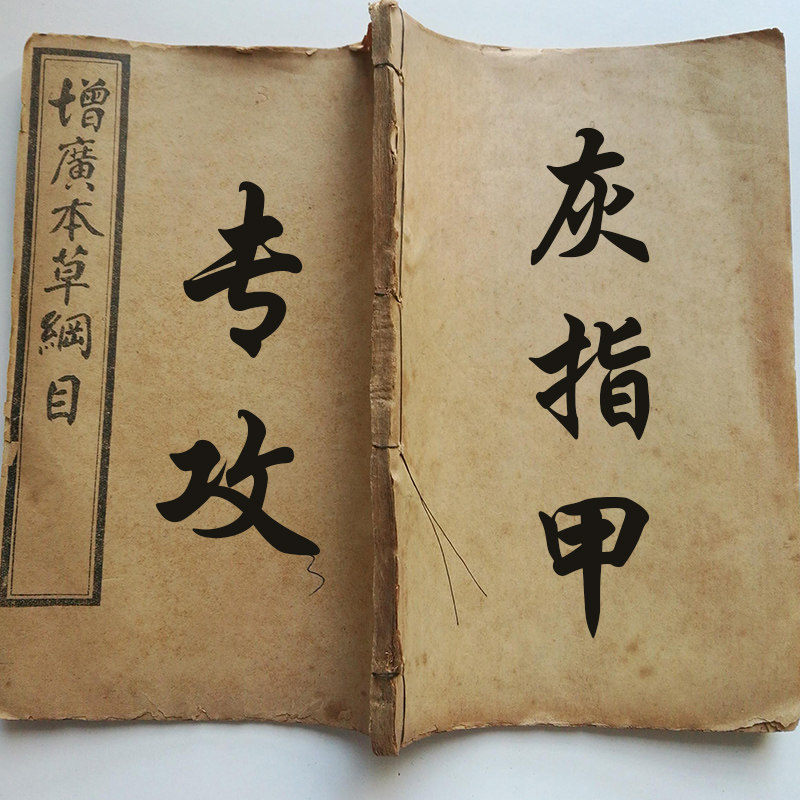 增廣本草綱目
专攻
灰指甲